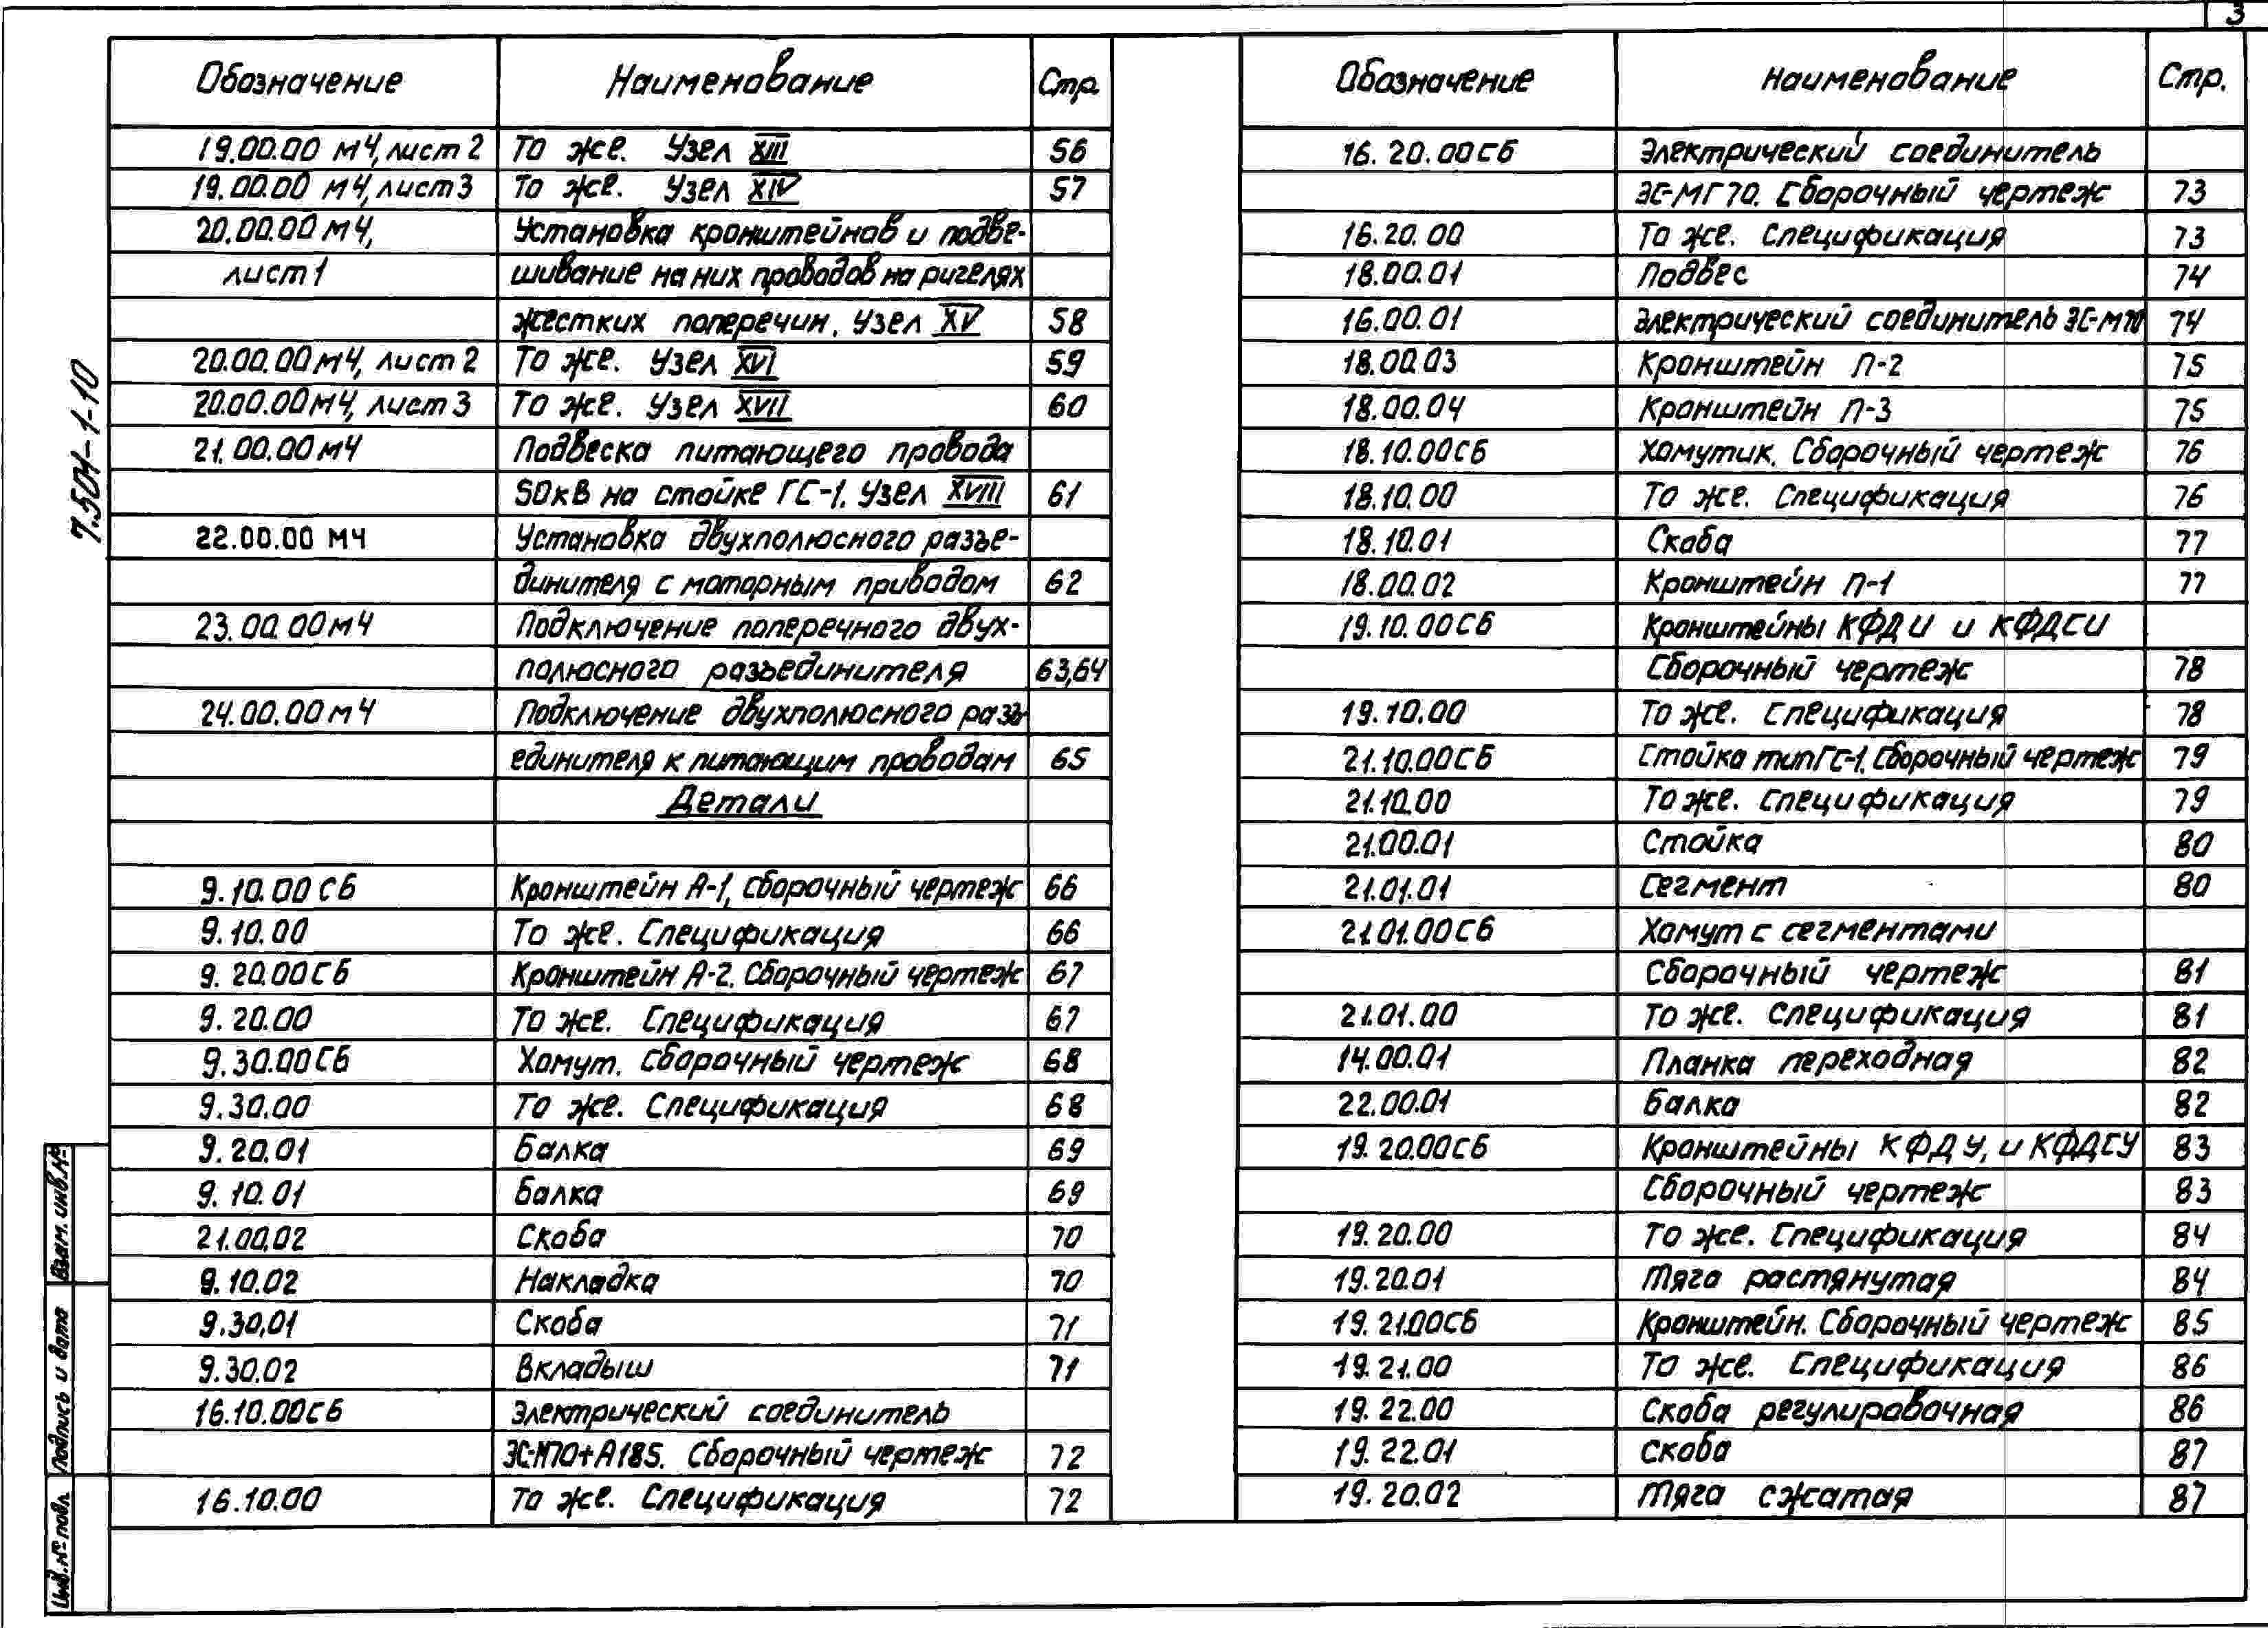 3
7.504-1-10
Обозначение Наименование Стр.
19.00.00 МЧ, лист 2 То же. Узел XIII 56
19.00.00 МЧ, лист 3 То же. Узел XIV 57
20.00.00 МЧ, Установка кронштейнов и подве-
лист 1 шивание на них проводов на ригелях
жестких поперечин. Узел XV 58
20.00.00 МЧ, лист 2 То же. Узел XVI 59
20.00.00 МЧ, лист 3 То же. Узел XVII 60
21.00.00 МЧ Подвеска питающего провода
50кВ на стойке ГС-1. Узел XVIII 61
22.00.00 МЧ Установка двухполюсного разъе-
динителя с моторным приводом 62
23.00.00 МЧ Подключение поперечного двух-
полюсного разъединителя 63,64
24.00.00 МЧ Подключение двухполюсного разъ-
единителя к питающим проводам 65
Детали
9.10.00 СБ Кронштейн А-1, сборочный чертеж 66
9.10.00 То же. Спецификация 66
9.20.00 СБ Кронштейн А-2. Сборочный чертеж 67
9.20.00 То же. Спецификация 67
9.30.00 СБ Хомут. Сборочный чертеж 68
9.30.00 То же. Спецификация 68
9.20.01 Балка 69
9.10.01 Балка 69
21.00.02 Скоба 70
9.10.02 Накладка 70
9.30.01 Скоба 71
9.30.02 Вкладыш 71
16.10.00 СБ Электрический соединитель
ЭС-М70+А185. Сборочный чертеж 72
16.10.00 То же. Спецификация 72
Обозначение Наименование Стр.
16.20.00 СБ Электрический соединитель
ЭС-МГ70. Сборочный чертеж 73
16.20.00 То же. Спецификация 73
18.00.01 Подвес 74
16.00.01 Электрический соединитель ЭС-М70 74
18.00.03 Кронштейн П-2 75
18.00.04 Кронштейн П-3 75
18.10.00 СБ Хомутик. Сборочный чертеж 76
18.10.00 То же. Спецификация 76
18.10.01 Скоба 77
18.00.02 Кронштейн П-1 77
19.10.00 СБ Кронштейны КФДИ и КФДСИ
Сборочный чертеж 78
19.10.00 То же. Спецификация 78
21.10.00 СБ Стойка тип ГС-1. Сборочный чертеж 79
21.10.00 То же. Спецификация 79
21.00.01 Стойка 80
21.01.01 Сегмент 80
21.01.00 СБ Хомут с сегментами
Сборочный чертеж 81
21.01.00 То же. Спецификация 81
14.00.01 Планка переходная 82
22.00.01 Балка 82
19.20.00 СБ Кронштейны КФДУ, и КФДСУ 83
Сборочный чертеж 83
19.20.00 То же. Спецификация 84
19.20.01 Тяга растянутая 84
19.21.00 СБ Кронштейн. Сборочный чертеж 85
19.21.00 То же. Спецификация 86
19.22.00 Скоба регулировочная 86
19.22.01 Скоба 87
19.20.02 Тяга сжатая 87
Взам. инв. №
Подпись и дата
Инв. № подл.